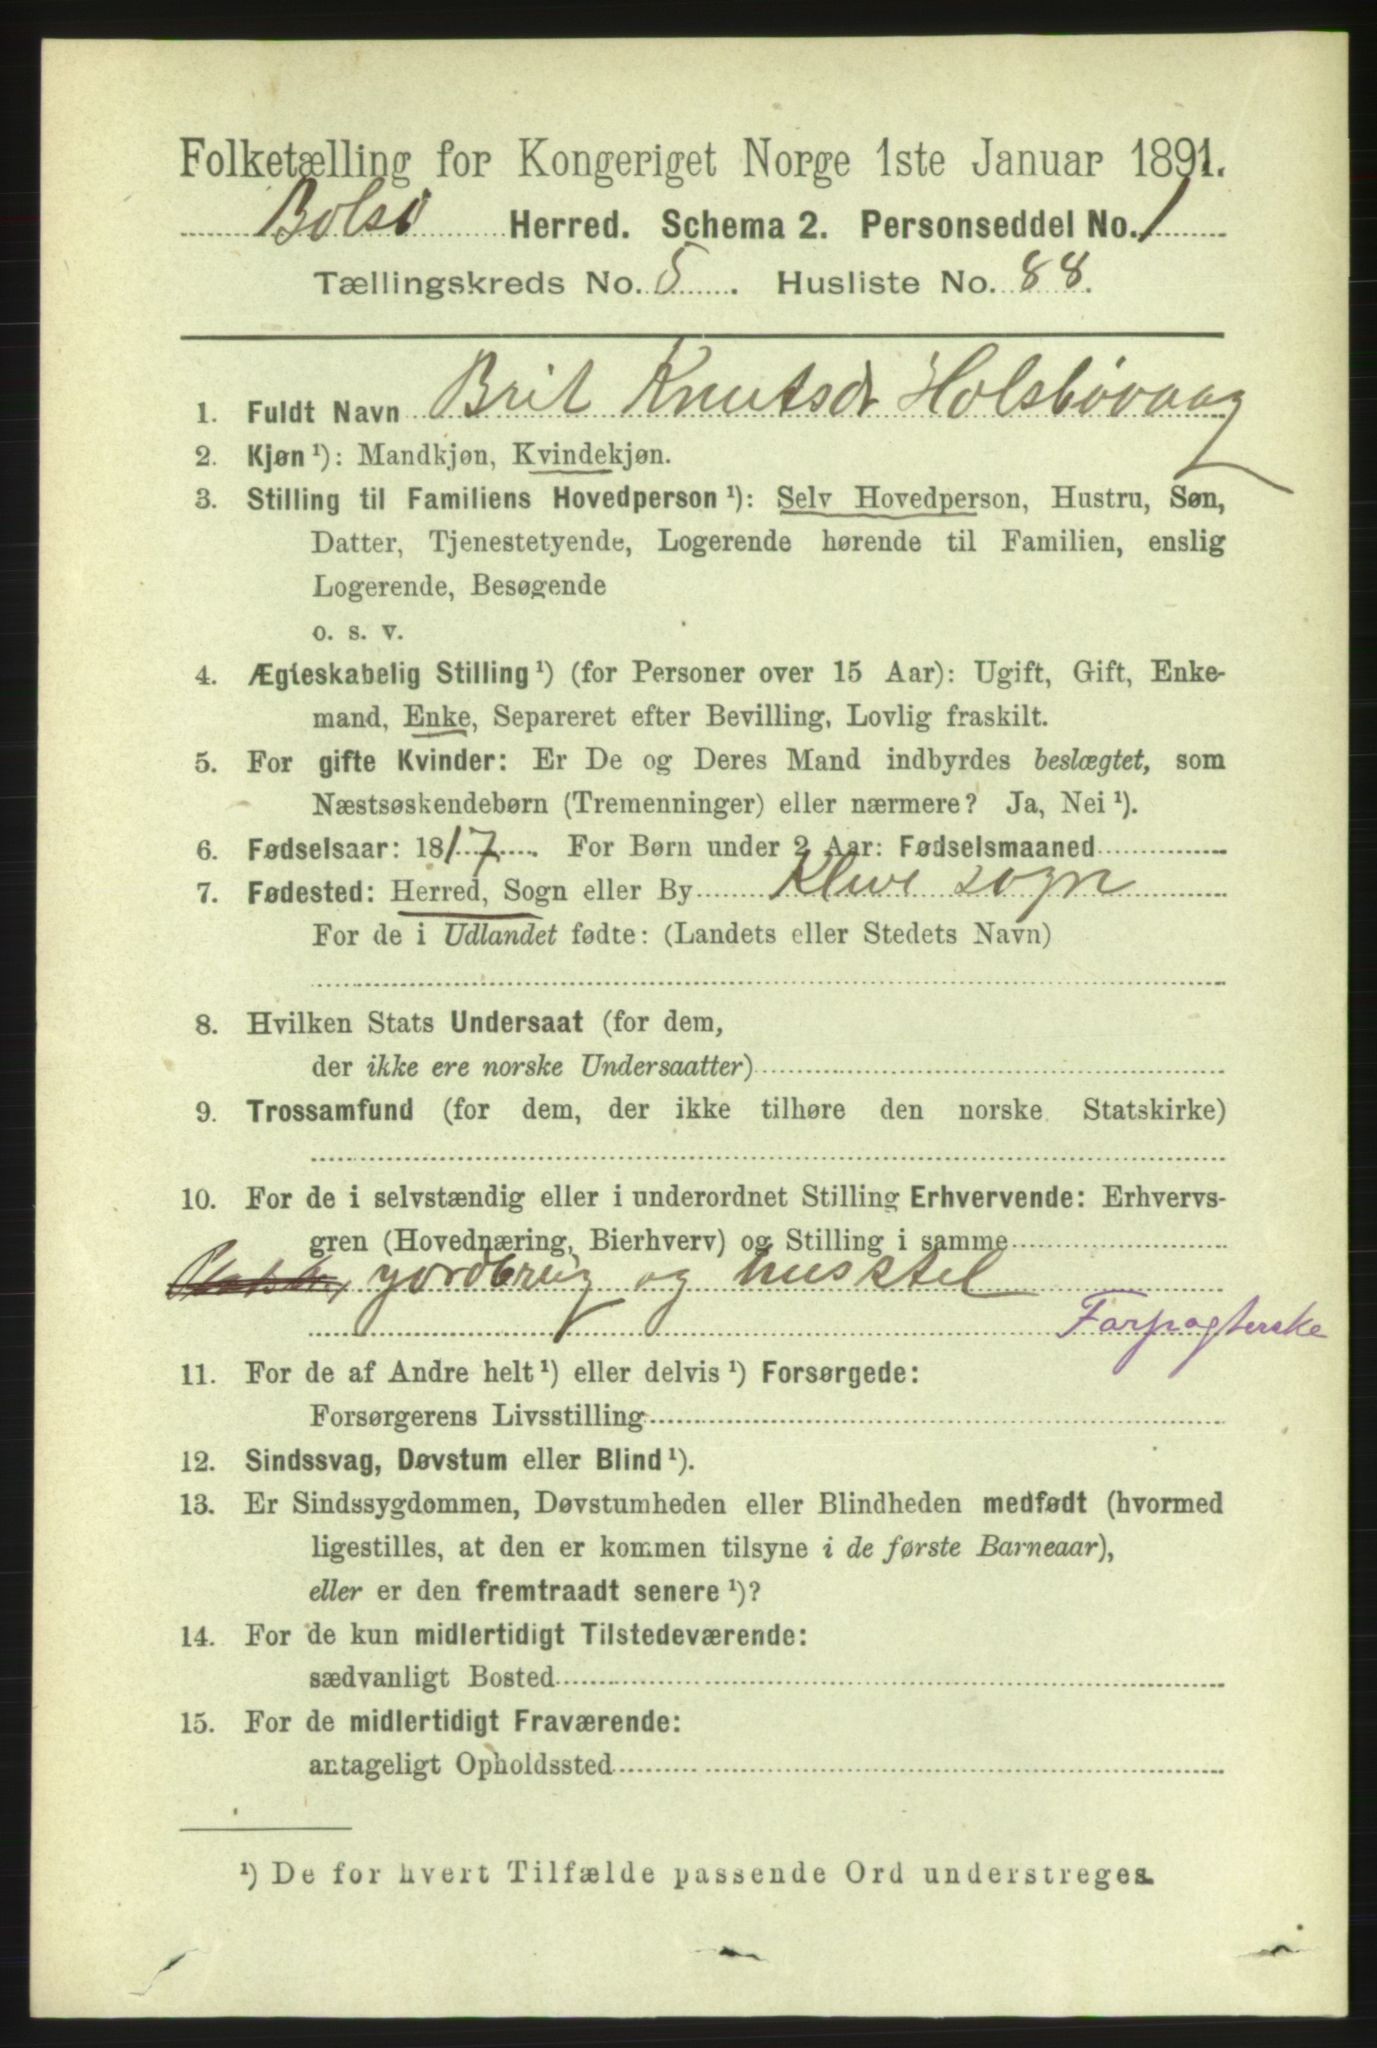 Folketælling for Kongeriget Norge 1ste Januar 1891.
Bolsø Herred. Schema 2. Personseddel No. 1
Tællingskreds No. 5. Husliste No. 88.
1. Fuldt Navn Brit Knutsdr Holsbøvaag
2. Kjøn ¹): Mandkjøn, Kvindekjøn.
3. Stilling til Familiens Hovedperson ¹): Selv Hovedperson, Hustru, Søn,
Datter, Tjenestetyende, Logerende hørende til Familien, enslig
Logerende, Besøgende
o. s. v.
4. Ægteskabelig Stilling ¹) (for Personer over 15 Aar): Ugift, Gift, Enke-
mand, Enke, Separeret efter Bevilling, Lovlig fraskilt.
5. For gifte Kvinder: Er De og Deres Mand indbyrdes beslægtet, som
Næstsøskendebørn (Tremenninger) eller nærmere? Ja, Nei ¹).
6. Fødselsaar: 1817. For Børn under 2 Aar: Fødselsmaaned
7. Fødested: Herred, Sogn eller By Kleive sogn
For de i Udlandet fødte: (Landets eller Stedets Navn)
8. Hvilken Stats Undersaat (for dem,
der ikke ere norske Undersaatter)
9. Trossamfund (for dem, der ikke tilhøre den norske Statskirke)
10. For de i selvstændig eller i underordnet Stilling Erhvervende: Erhvervs-
gren (Hovednæring, Bierhverv) og Stilling i samme
yordbrug og husstel
Forpagterske
11. For de af Andre helt ¹) eller delvis ¹) Forsørgede:
Forsørgerens Livsstilling
12. Sindssvag, Døvstum eller Blind ¹).
13. Er Sindssygdommen, Døvstumheden eller Blindheden medfødt (hvormed
ligestilles, at den er kommen tilsyne i de første Barneaar),
eller er den fremtraadt senere ¹)?
14. For de kun midlertidigt Tilstedeværende:
sædvanligt Bosted
15. For de midlertidigt Fraværende:
antageligt Opholdssted
¹) De for hvert Tilfælde passende Ord understreges.